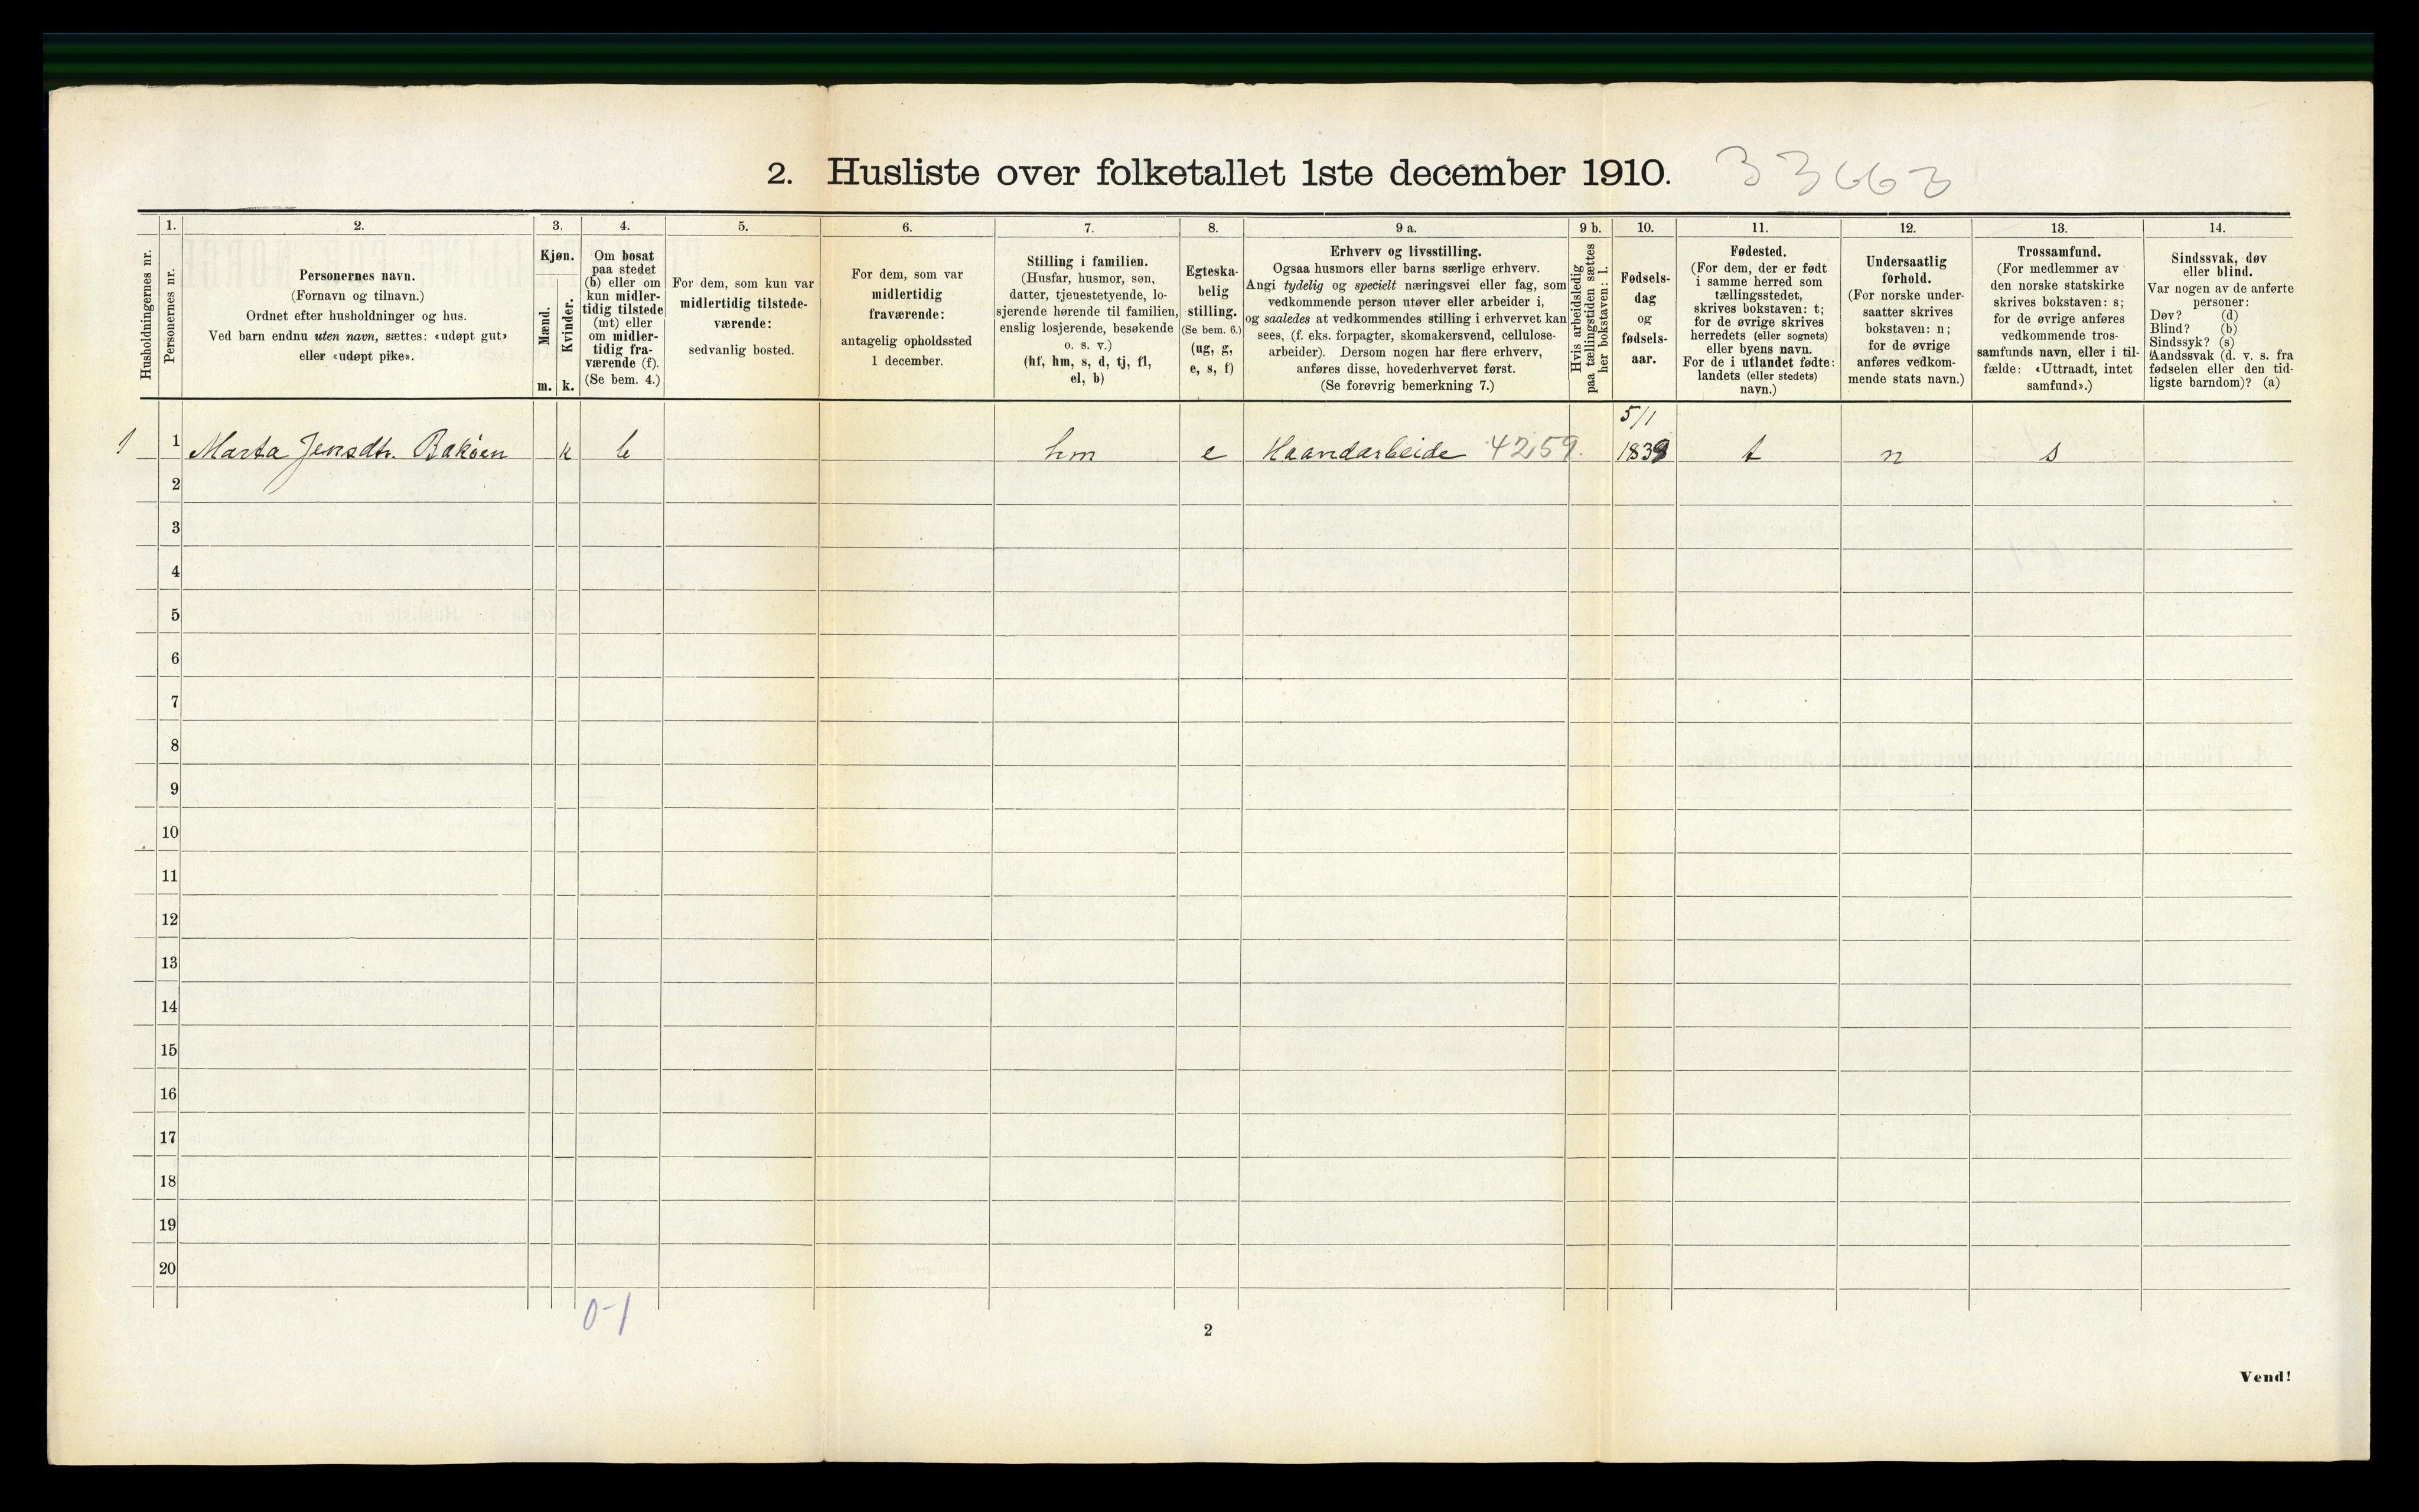 2. Husliste over folketallet 1ste december 1910. 33663
Husholdningernes nr.
1.
Personernes nr.
2.
Personernes navn.
(Fornavn og tilnavn.)
Ordnet efter husholdninger og hus.
Ved barn endnu uten navn, sættes: «udøpt gut»
eller «udøpt pike».
3.
Kjøn.
Mænd.
m.
Kvinder.
k.
4.
Om bosat
paa stedet
(b) eller om
kun midler-
tidig tilstede
(mt) eller
om midler-
tidig fra-
værende (f).
(Se bem. 4.)
5.
For dem, som kun var
midlertidig tilstede-
værende:
sedvanlig bosted.
6.
For dem, som var
midlertidig
fraværende:
antagelig opholdssted
1 december.
7.
Stilling i familien.
(Husfar, husmor, søn,
datter, tjenestetyende, lo-
sjerende hørende til familien,
enslig losjerende, besøkende
o. s. v.)
(hf, hm, s, d, tj, fl,
el, b)
8.
Egteska-
belig
stilling.
(Se bem. 6.)
(ug, g,
e, s, f)
9 a.
Erhverv og livsstilling.
Ogsaa husmors eller barns særlige erhverv.
Angi tydelig og specielt næringsvei eller fag, som
vedkommende person utøver eller arbeider i,
og saaledes at vedkommendes stilling i erhvervet kan
sees, (f. eks. forpagter, skomakersvend, cellulose-
arbeider). Dersom nogen har flere erhverv,
anføres disse, hovederhvervet først.
(Se forøvrig bemerkning 7.)
9 b.
Hvis arbeidsledig
paa tællingstiden sættes
her bokstaven: l.
10.
Fødsels-
dag
og
fødsels-
aar.
11.
Fødested.
(For dem, der er født
i samme herred som
tællingsstedet,
skrives bokstaven: t;
for de øvrige skrives
herredets (eller sognets)
eller byens navn.
For de i utlandet fødte:
landets (eller stedets)
navn.)
12.
Undersaatlig
forhold.
(For norske under-
saatter skrives
bokstaven: n;
for de øvrige
anføres vedkom-
mende stats navn.)
13.
Trossamfund.
(For medlemmer av
den norske statskirke
skrives bokstaven: s;
for de øvrige anføres
vedkommende tros-
samfunds navn, eller i til-
fælde: «Uttraadt, intet
samfund».)
14.
Sindssvak, døv
eller blind.
Var nogen av de anførte
personer:
Døv? (d)
Blind? (b)
Sindssyk? (s)
Aandssvak (d. v. s. fra
fødselen eller den tid-
ligste barndom)? (a)
5/1
1 1 Marta Jensdtr. Bakøen k b hm e Haandarbeide 4259. 1839 t n s
2
3
4
5
6
7
8
9
10
11
12
13
14
15
16
17
18
19
20
0-1
2
Vend!